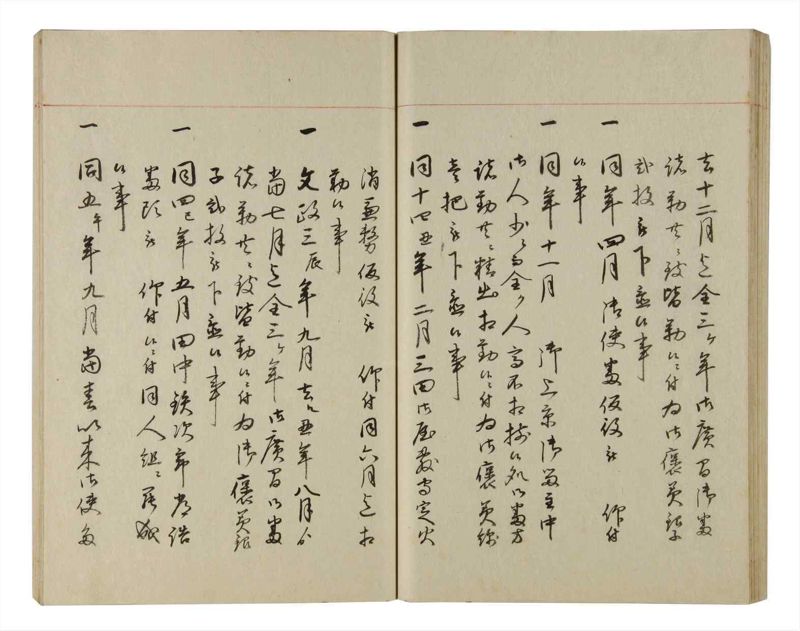 去十二月迄全三ヶ年御廣間御番
諸勤共ニ致皆勤候ニ付為御褒美銀子
弐枚被下置候事
一 同年四月御使番仮役被 仰付
候事
一 同年十一月 御上京御留主中
御人少ニ而 人高不相揃候処 番方
諸勤共ニ精出相勤候ニ付為御褒美綿
壱把被下置候事
一 同十四丑年二月三田御屋敷定火
消兼務仮役被 仰付同六月迄相
勤候事
一 文政三辰年九月去ル丑年八月ゟ
當七月迄全三ヶ年御廣間御番
諸勤共ニ致皆勤候ニ付為御褒美銀
子弐枚被下置候事
一 同四巳年五月田中鉄次郎 詰
番頭被 仰付候ニ付同人組ニ罷成
候事
一 同五午年九月當春以来御使番